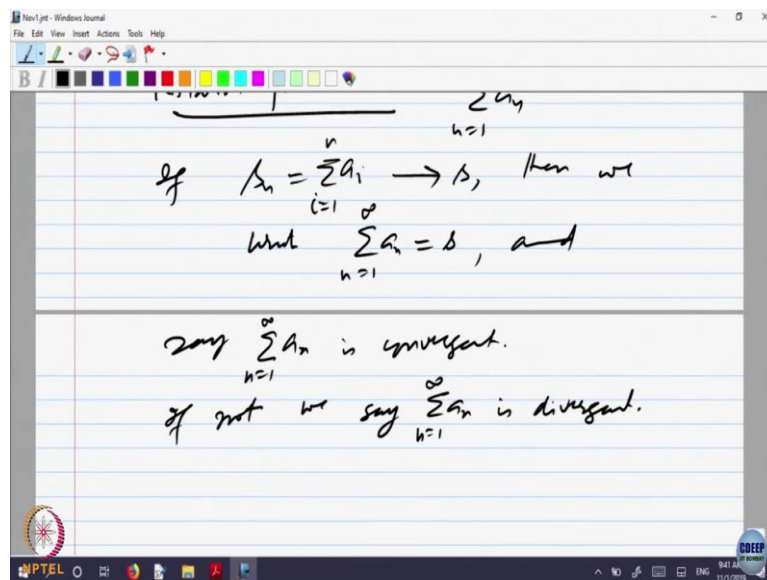 Nov1.jnt - Windows Journal
File Edit View Insert Actions Tools Help
B I
Σ aₙ
n=1
If sₙ = Σ_{i=1}^{n} aᵢ → s, then we
write Σ_{n=1}^{∞} aₙ = s, and
say Σ_{n=1}^{∞} aₙ is convergent.
If not we say Σ_{n=1}^{∞} aₙ is divergent.
NPTEL
CDEEP
IIT BOMBAY
ENG
9:41 AM
11/1/2019